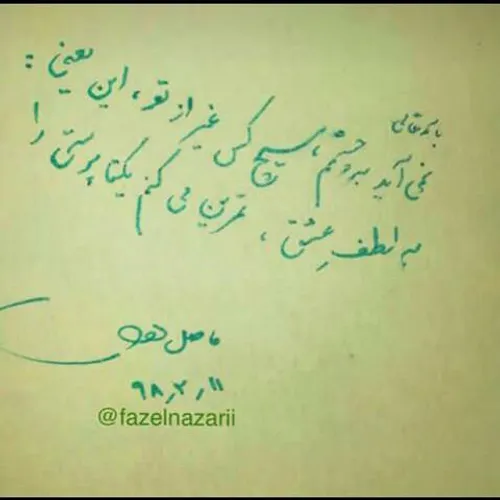 باسمه تعالی
نمی آید به چشمم، هیچ کس غیر از تو، این یعنی :
به لطفِ عشق، تمرین می کنم یکتا پرستی را
فاضل نظری
۹۸٫۲٫۱۱
@fazelnazarii